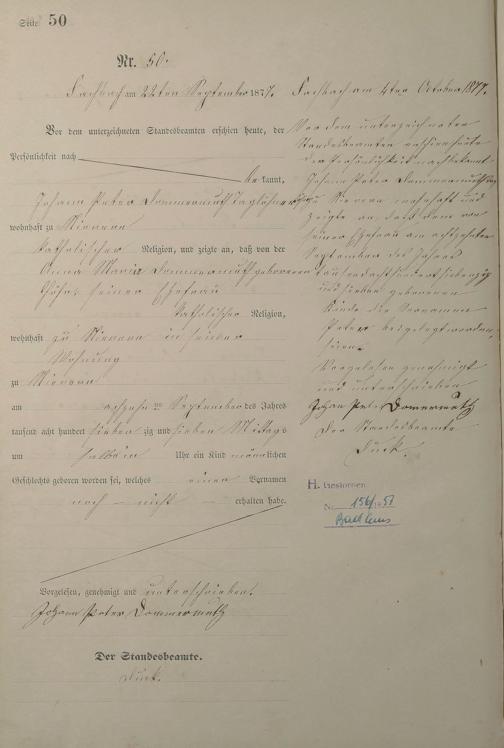 Seite 50
Nr. 50.
Fachbach am 22ten September 1877.
Vor dem unterzeichneten Standesbeamten erschien heute, der
Persönlichkeit nach
be kannt,
Johann Peter Dommermuth Taglöhner
wohnhaft zu Nievern
katholischer Religion, und zeigte an, daß von der
Anna Maria Dommermuth geborenen
seiner Ehefrau
katholischer Religion,
wohnhaft zu Nievern in seiner
Wohnung
zu Nievern
am achzehn ten September des Jahres
tausend acht hundert sieben zig und sieben Mittags
um halb ein Uhr ein Kind männlichen
Geschlechts geboren worden sei, welches einen Vornamen
noch - nicht - erhalten habe.
Vorgelesen, genehmigt und unterschrieben.
Johann Peter Dommermuth
Der Standesbeamte.
Fachbach am 4ten October 1877.
Vor dem unterzeichneten
Standesbeamten erschien heute
der Persönlichkeit nach bekannt
Johann Peter Dommermuth
zu Nievern wohnhaft und
zeigte an, daß dem von
seiner Ehefrau am achtzehnten
September des Jahres
tausendachthundertsiebenzig
und sieben geborenen
Kinde die Vornamen
Peter beigelegt worden
seien.
Vorgelesen genehmigt
und unterschrieben
Johan Pet. Dommermuth
Der Standesbeamte
H. Gestorben
Nr. 156/1951
Bad Ems